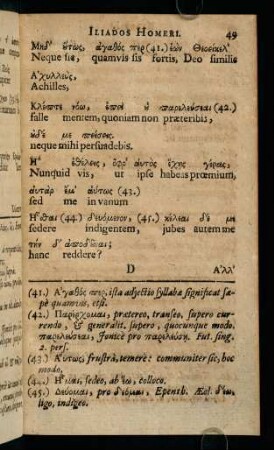 ILIADOS HOMERI. 49
Μηδ᾽ ὕτως, ἀγαθός πὲρ (41.) ἐὼν Θεοείκελ᾽
Neque sic, quamvis sis fortis, Deo similis
Α᾽χιλλεῦ,
Achilles,
Κλέπτε νόῳ, ἐπεὶ ὐ παρελεύσεαι (42.)
falle mentem, quoniam non præteribis,
ὐδέ με πείσεις.
neque mihi persuadebis.
Η῏ ἐθέλεις, ὄφρ᾽ αὐτὸς ἔχῃς γέρας,
Nunquid vis, ut ipse habeas præmium,
αὐτὰρ ἔμ᾽ αὔτως (43.)
sed me in vanum
Η῟σται (44.) δευόμενον, (45.) κέλεαι δέ με
sedere indigentem, jubes autem me
τήν δ᾽ ἀποδῦναι;
hanc reddere?
D Α᾽λλ᾽
(41.) Α᾽γαθός περ, ista adjectio syllaba significat sæ-
pè quamvis, etsi.
(42.) Παρέρχομαι, prætereo, transeo, supero cur-
rendo, & generalit. supero, quocunque modo.
παρελεύσεαι, Jonicè pro παρελεύσῃ. Fut. sing.
2. pers.
(43.) Αὔτως; frustrà, temerè: communiter sic, hoc
modo.
(44.) Η῟μαι, sedeo, ab ἕω, colloco.
(45.) Δεύομαι, pro δέομαι, Epenth. Æol. δέω,
ligo, indigeo.